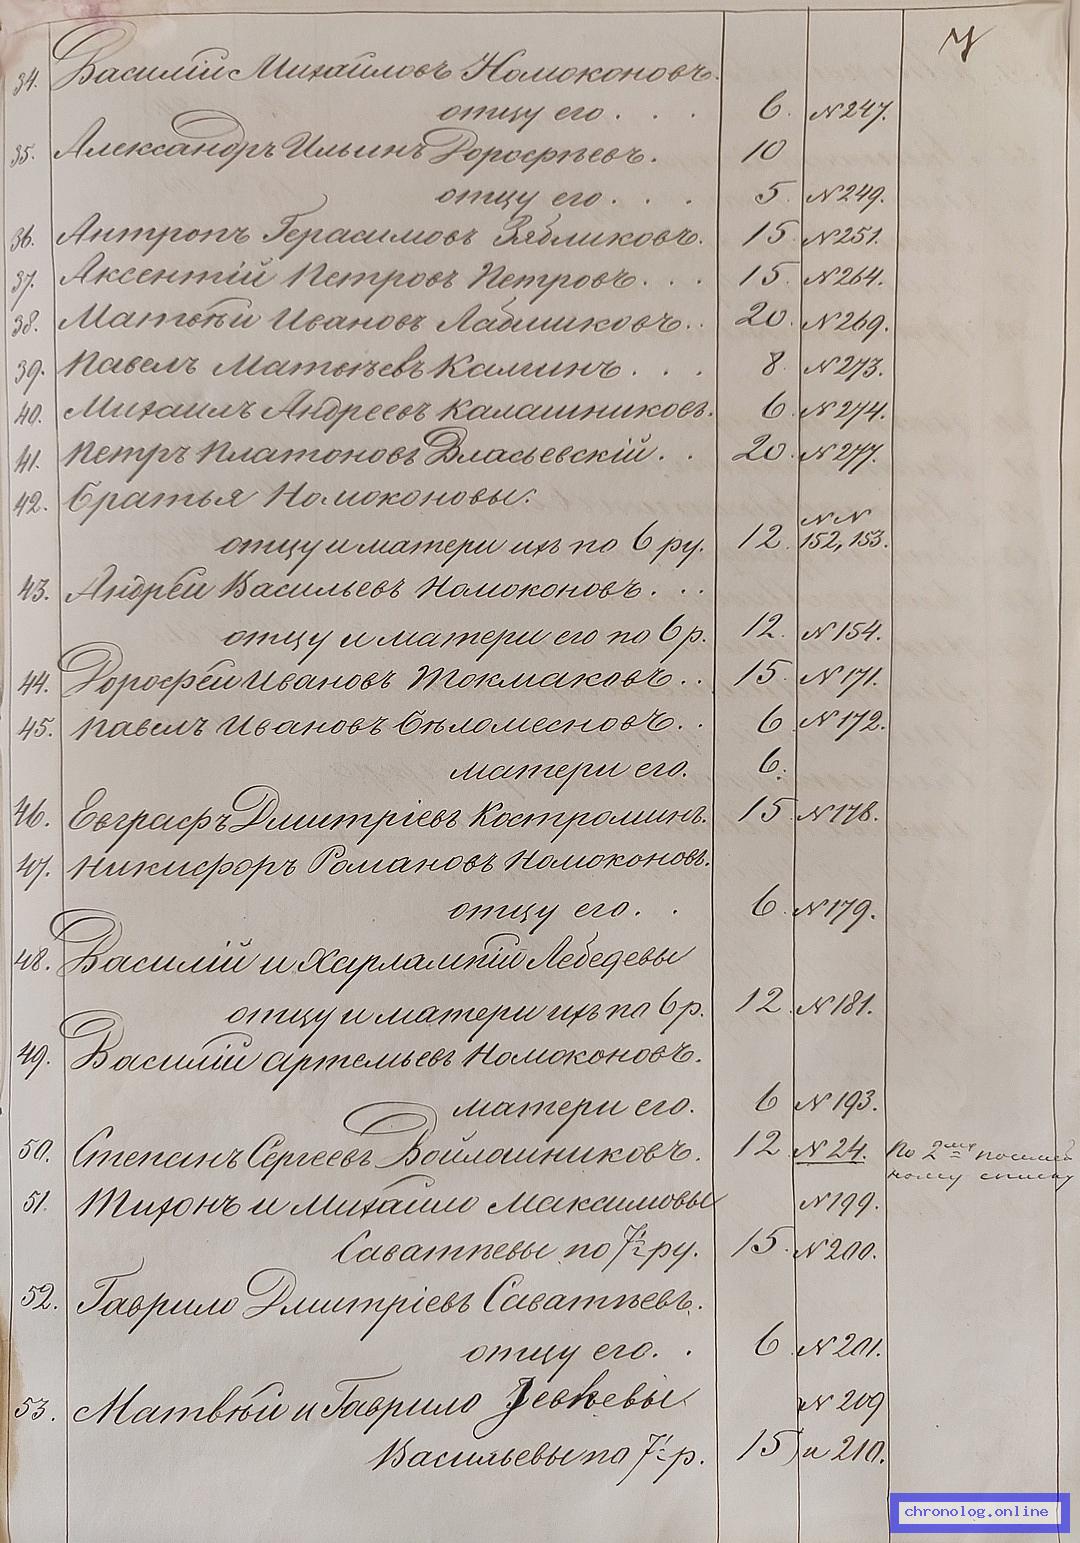 34. Василій Михайловъ Номоконовъ.
отцу его . . . 6. №247.
35. Александръ Ильинъ Дорофѣевъ. 10
отцу его . . . 5. №249.
36. Антропъ Герасимовъ Зябликовъ. 15. №251.
37. Аксентій Петровъ Петровъ . . . 15. №264.
38. Матвѣй Ивановъ Лабшиковъ . . 20. №269.
39. Павелъ Матвѣевъ Калинъ . . . 8. №273.
40. Михаилъ Андреевъ Калашниковъ. 6. №274.
41. Петръ Платоновъ Власьевскій . . 20. №277.
42. Братья Номоконовы:
№№
отцу и матери ихъ по 6 ру. 12. 152, 153.
43. Андрей Васильевъ Номоконовъ . . .
отцу и матери его по 6 р. 12. №154.
44. Дорофѣй Ивановъ Токмаковъ . . 15. №171.
45. Павелъ Ивановъ Бѣломесновъ . . 6 №172.
матери его. 6.
46. Евграфъ Дмитріевъ Костроминъ. 15 №178.
47. Никифоръ Романовъ Номоконовъ.
отцу его . . 6. №179.
48. Василій и Харлампій Лебедевы
отцу и матери ихъ по 6 р. 12. №181.
49. Василій Артемьевъ Номоконовъ.
матери его. 6 №193.
50. Степанъ Сергеевъ Войлошниковъ. 12. №24. По 2
ному списку
51. Тихонъ и Михайло Максимовы №199.
Саватѣевы по 7½ ру. 15. №200.
52. Гаврило Дмитріевъ Саватѣевъ.
отцу его . . 6. №201.
53. Матвѣй и Гаврило Іевлевы №209
Васильевы по 7½ р. 15 и 210.
chronolog.online